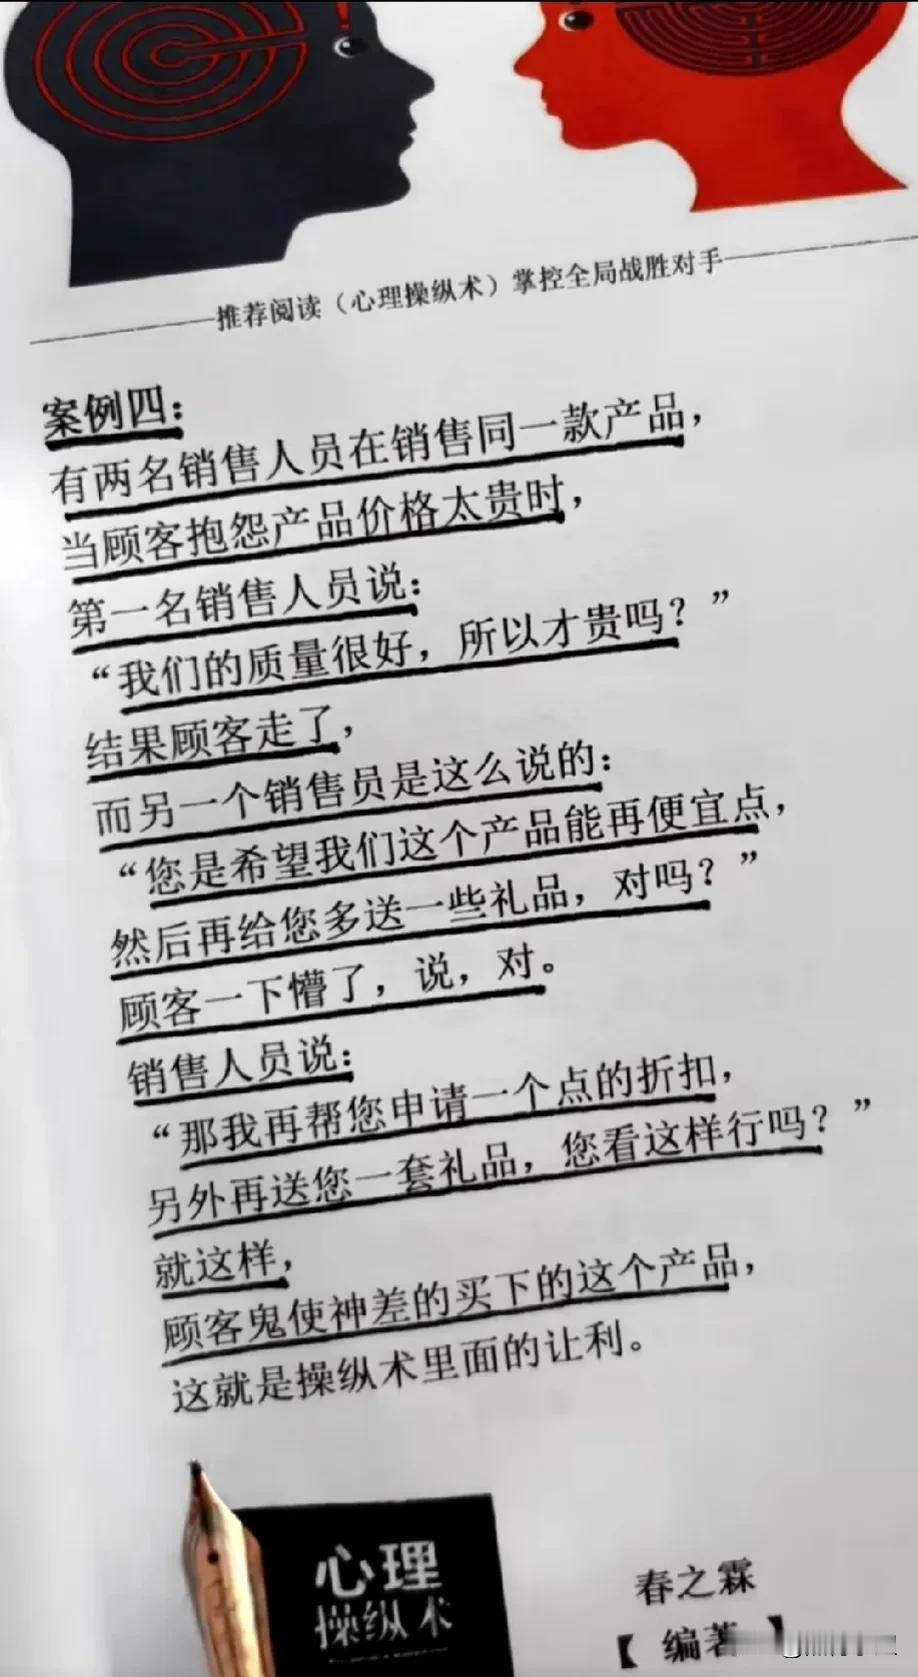 推荐阅读（心理操纵术）掌控全局战胜对手
案例四：
有两名销售人员在销售同一款产品，
当顾客抱怨产品价格太贵时，
第一名销售人员说：
“我们的质量很好，所以才贵吗？”
结果顾客走了，
而另一个销售员是这么说的：
“您是希望我们这个产品能再便宜点，
然后再给您多送一些礼品，对吗？”
顾客一下懵了，说，对。
销售人员说：
“那我再帮您申请一个点的折扣，
另外再送您一套礼品，您看这样行吗？”
就这样，
顾客鬼使神差的买下的这个产品，
这就是操纵术里面的让利。
心理
操纵术
春之霖
【编著】